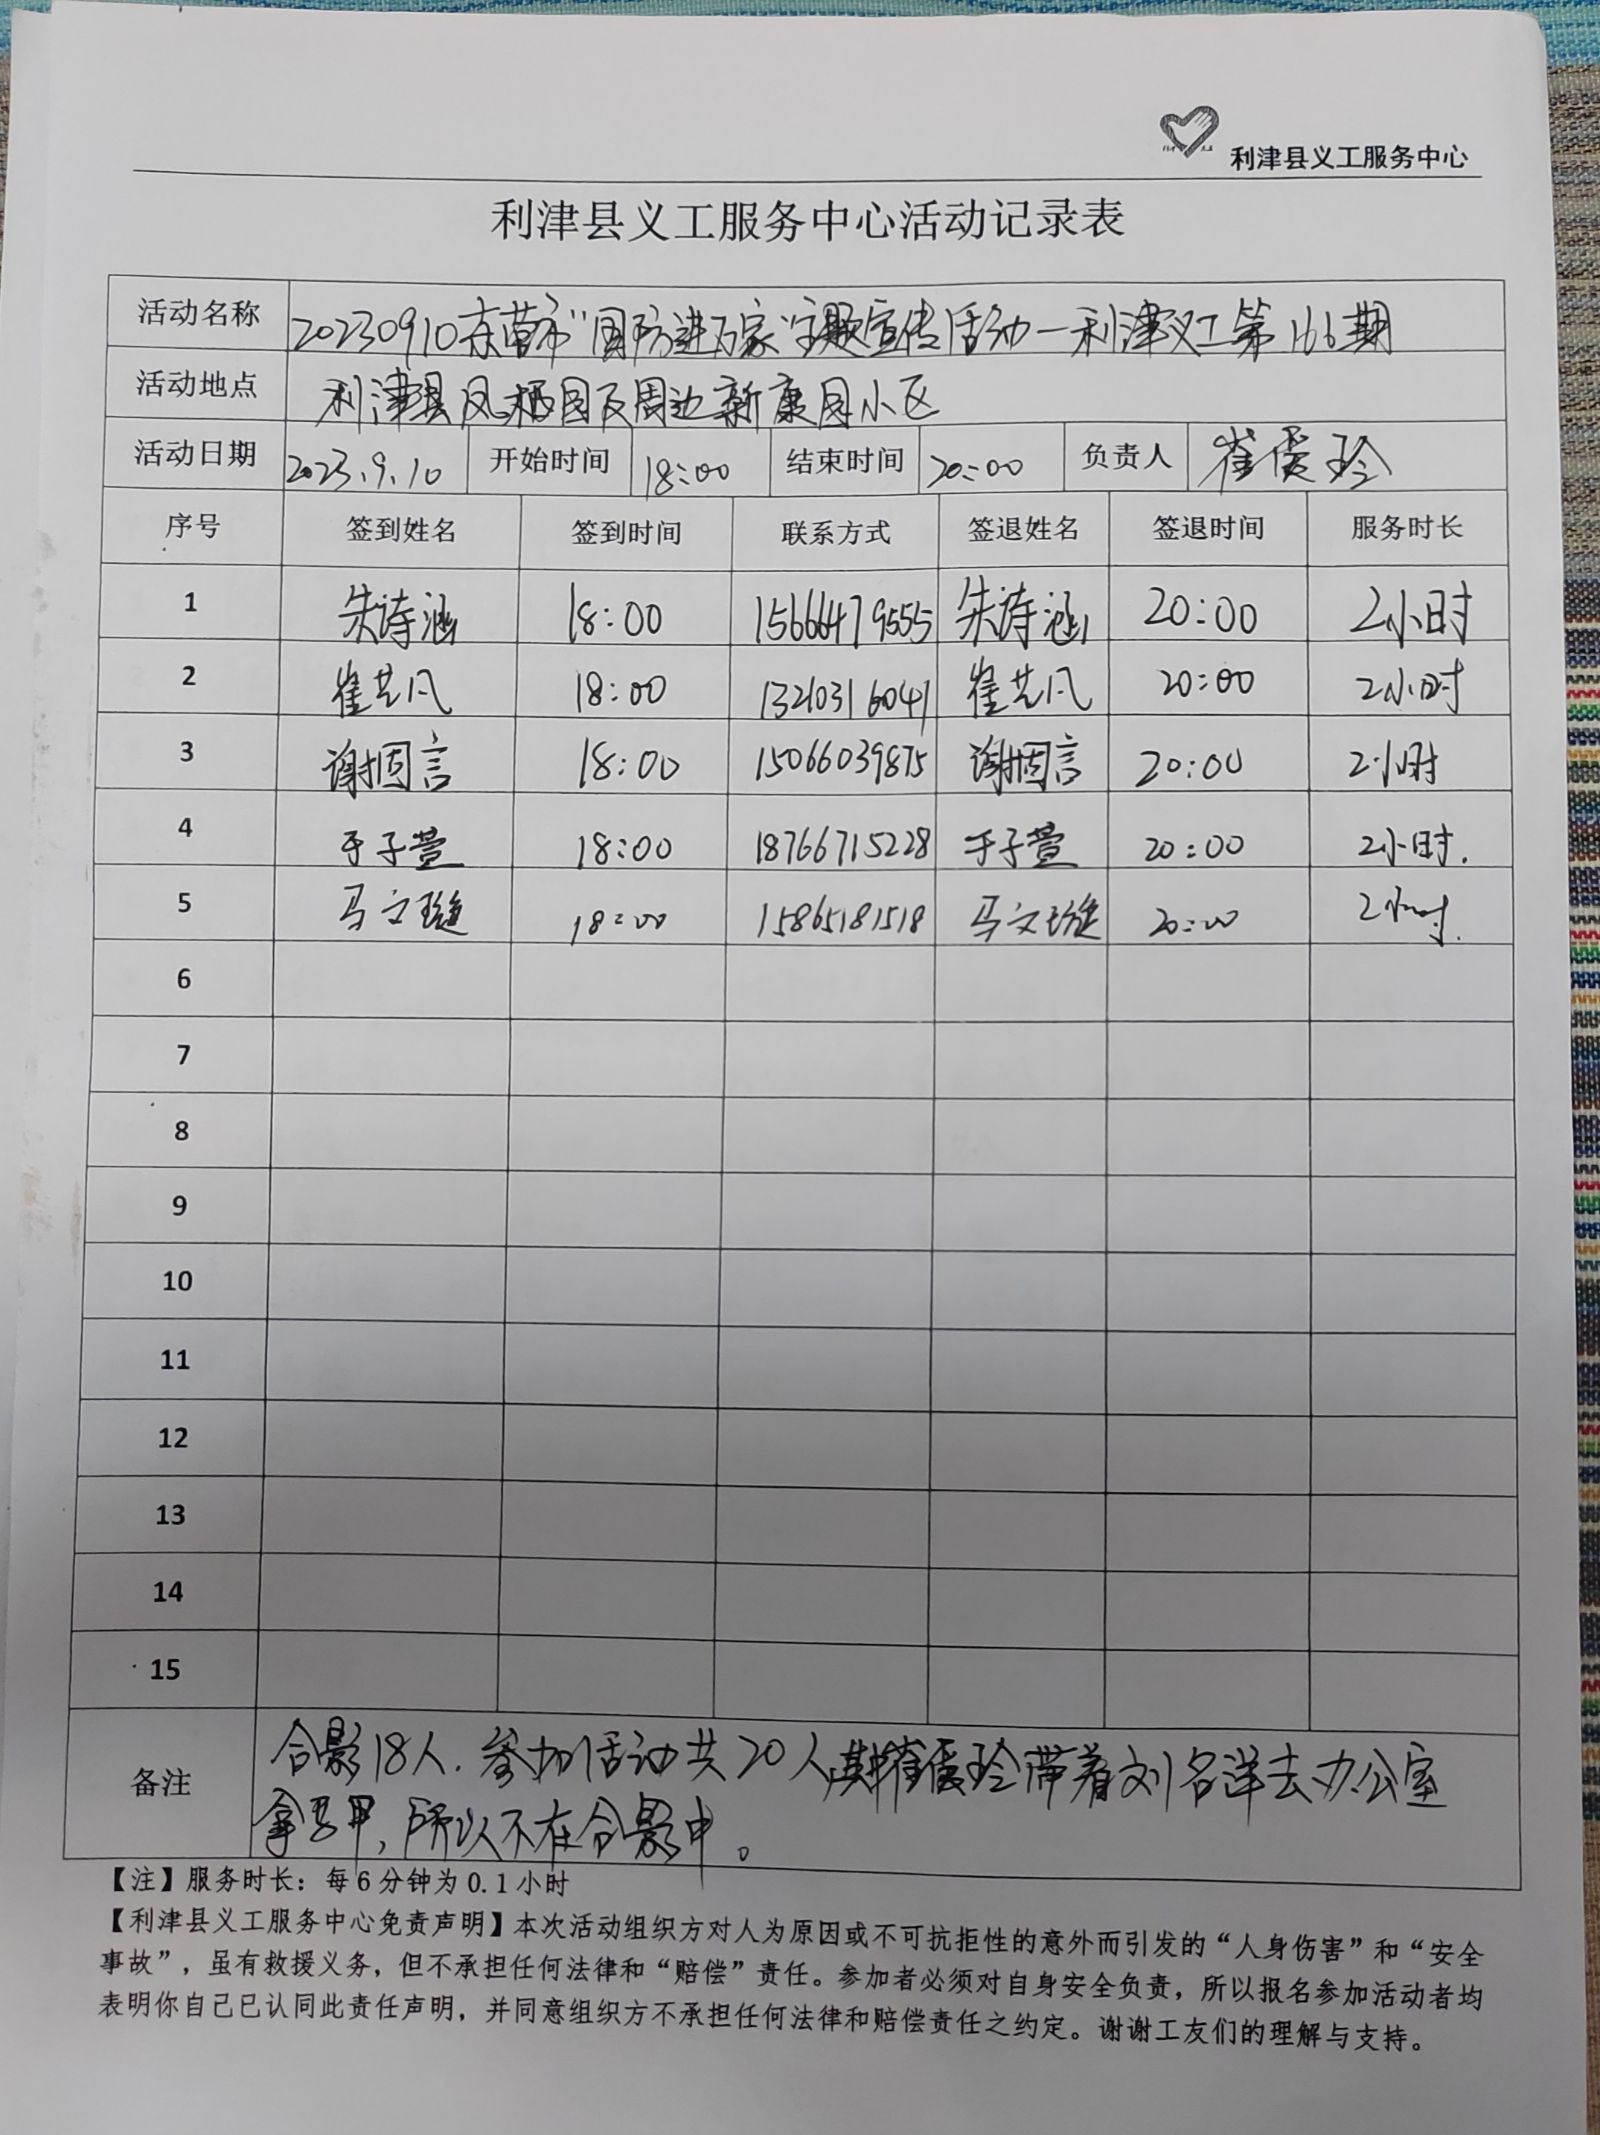 利津县义工服务中心
利津县义工服务中心活动记录表
活动名称 20230910东营市“国防进万家”主题宣传活动—利津义工第166期
活动地点 利津县凤栖园及周边新康园小区
活动日期 2023.9.10 开始时间 18:00 结束时间 20:00 负责人 崔霞玲
序号 签到姓名 签到时间 联系方式 签退姓名 签退时间 服务时长
1 朱诗涵 18:00 15666479555 朱诗涵 20:00 2小时
2 崔芸凡 18:00 13210316041 崔芸凡 20:00 2小时
3 谢固言 18:00 15066039875 谢固言 20:00 2小时
4 于子萱 18:00 18766715228 于子萱 20:00 2小时.
5 马文璇 18:00 15865181518 马文璇 20:00 2小时.
6
7
8
9
10
11
12
13
14
15
备注 合影18人.参加活动共20人,其中崔霞玲带着刘名洋去办公室
拿马甲,所以不在合影中。
【注】服务时长：每6分钟为0.1小时
【利津县义工服务中心免责声明】本次活动组织方对人为原因或不可抗拒性的意外而引发的“人身伤害”和“安全
事故”，虽有救援义务，但不承担任何法律和“赔偿”责任。参加者必须对自身安全负责，所以报名参加活动者均
表明你自己已认同此责任声明，并同意组织方不承担任何法律和赔偿责任之约定。谢谢工友们的理解与支持。